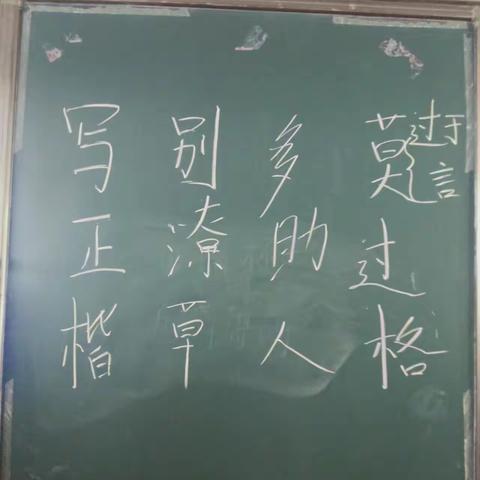 写正楷
别潦草
多助人
莫过格